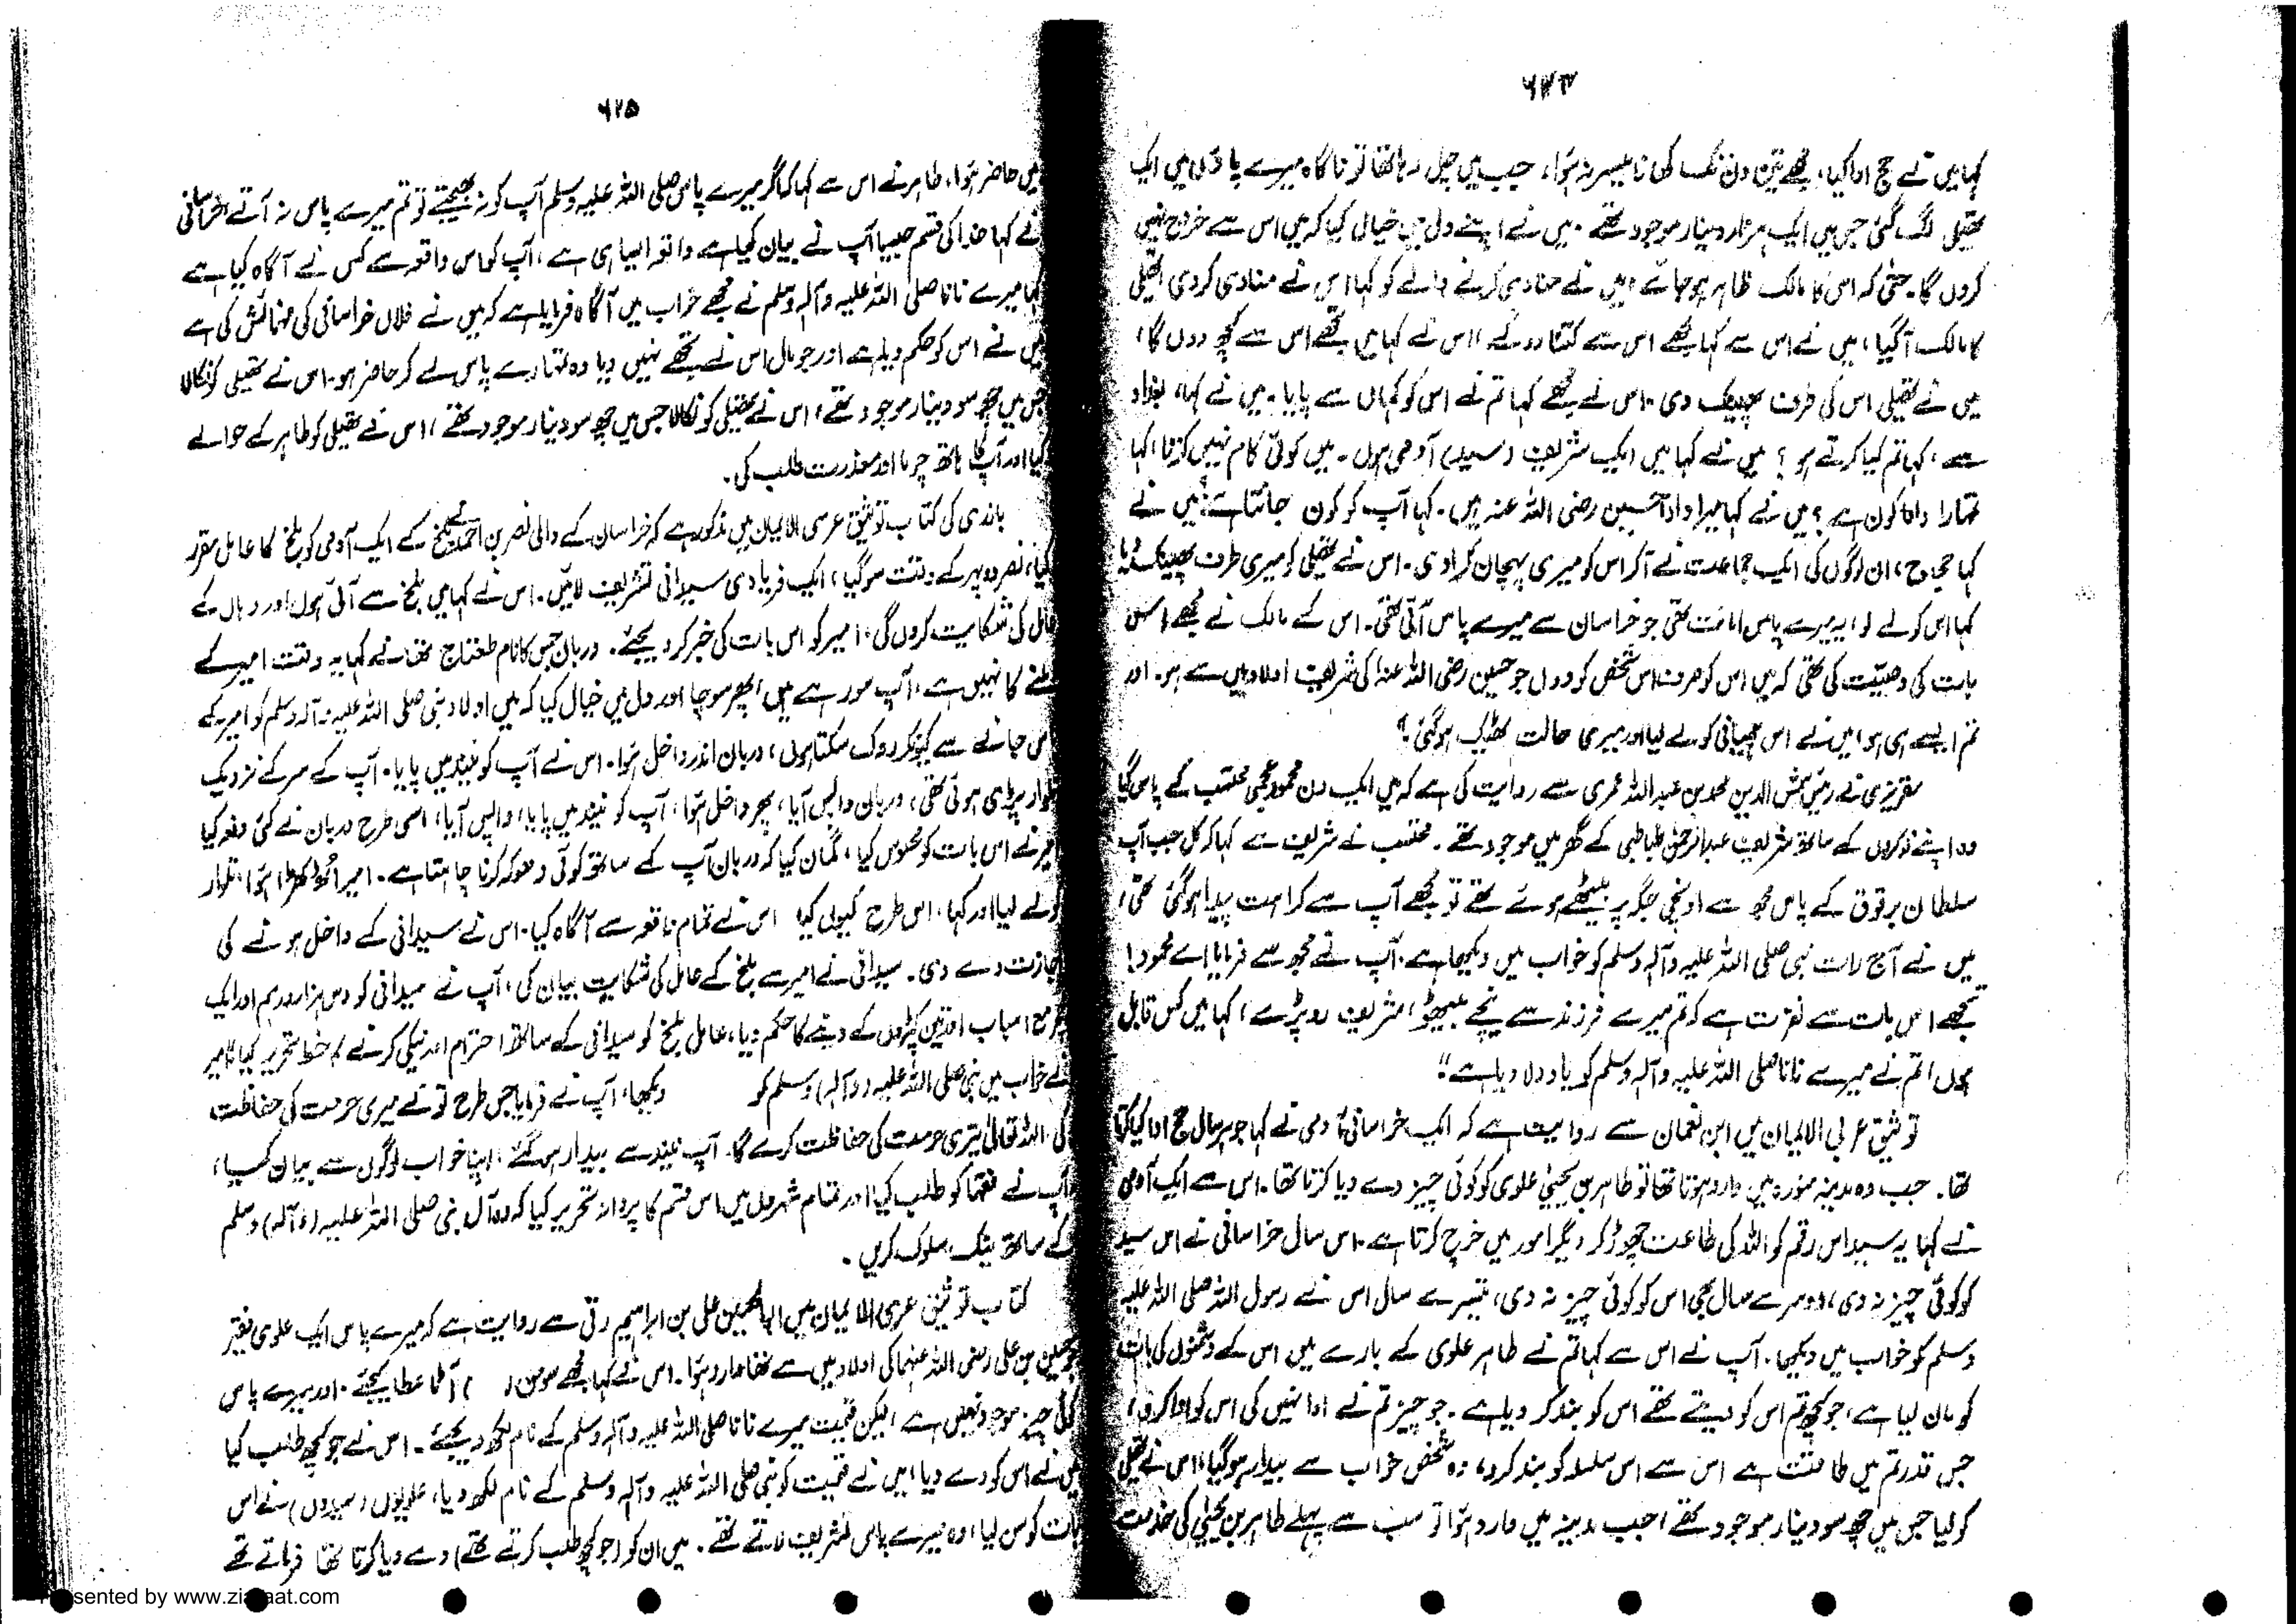 ۶۲۴
کہا میں نے حج ادا کیا، مجھے تین دن تک کھانا میسر نہ ہوا، جب میں چل رہا تھا تو ناگاہ میرے پاؤں میں ایک
تھیلی لگ گئی جس میں ایک ہزار دینار موجود تھے۔ میں نے اپنے دل میں خیال کیا کہ میں اس سے خرچ نہیں
کروں گا۔ حتیٰ کہ اس کا مالک ظاہر ہو جائے، میں نے منادی کرنے والے کو کہا اس نے منادی کر دی تھیلی
کا مالک آگیا، میں نے اس سے کہا مجھے اس سے کتنا دو گے، اس نے کہا میں تجھے اس سے کچھ دوں گا،
میں نے تھیلی اس کی طرف پھینک دی۔ اس نے مجھے کہا تم نے اس کو کہاں سے پایا۔ میں نے کہا، بغداد
سے، کہا تم کیا کرتے ہو؟ میں نے کہا میں ایک شریف (سید) آدمی ہوں۔ میں کوئی کام نہیں کرتا، کہا
تمہارا دادا کون ہے؟ میں نے کہا میرا دادا حسین رضی اللہ عنہ ہیں۔ کہا آپ کو کون جانتا ہے؟ میں نے
کہا حجاج، ان لوگوں کی ایک جماعت نے آکر اس کو میری پہچان کرا دی۔ اس نے تھیلی کو میری طرف پھینک دیا
کہا اس کو لے لو، یہ میرے پاس امانت تھی جو خراسان سے میرے پاس آئی تھی۔ اس کے مالک نے مجھے اس
بات کی وصیت کی تھی کہ میں اس کو صرف اس شخص کو دوں جو حسین رضی اللہ عنہ کی شریف اولاد میں سے ہو۔ اور
تم ایسے ہی ہو، میں نے اس ہمیانی کو لے لیا اور میری حالت ٹھیک ہو گئی؟
مقریزی نے رئیس شمس الدین محمد بن عبداللہ عمری سے روایت کی ہے کہ میں ایک دن محمود عجمی محتسب کے پاس گیا
وہ اپنے نوکروں کے ساتھ شریف عبدالرحمٰن طباطبی کے گھر میں موجود تھے۔ محتسب نے شریف سے کہا کہ کل جب آپ
سلطان برقوق کے پاس مجھ سے اونچی جگہ پر بیٹھے ہوئے تھے تو مجھے آپ سے کراہت پیدا ہو گئی تھی،
میں نے آج رات نبی صلی اللہ علیہ وآلہ وسلم کو خواب میں دیکھا ہے، آپ نے مجھ سے فرمایا اے محمود!
تجھے اس بات سے نفرت ہے کہ تم میرے فرزند سے نیچے بیٹھو، شریف رو پڑے، کہا میں کس قابل
ہوں، تم نے میرے نانا صلی اللہ علیہ وآلہ وسلم کو یاد دلا دیا ہے"
توثیق عری الایمان میں ابن نعمان سے روایت ہے کہ ایک خراسانی آدمی نے کہا جو ہر سال حج ادا کیا کرتا
تھا۔ جب وہ مدینہ منورہ میں وارد ہوتا تھا تو طاہر بن یحییٰ علوی کو کوئی چیز دے دیا کرتا تھا۔ اس سے ایک آدمی
نے کہا یہ سید اس رقم کو اللہ کی طاعت چھوڑ کر دیگر امور میں خرچ کرتا ہے۔ اس سال خراسانی نے اس سید
کو کوئی چیز نہ دی، دوسرے سال بھی اس کو کوئی چیز نہ دی، تیسرے سال اس نے رسول اللہ صلی اللہ علیہ
وسلم کو خواب میں دیکھا۔ آپ نے اس سے کہا تم نے طاہر علوی کے بارے میں اس کے دشمنوں کی بات
کو مان لیا ہے، جو کچھ تم اس کو دیتے تھے اس کو بند کر دیا ہے۔ جو چیز تم نے ادا نہیں کی اس کو ادا کرو،
جس قدر تم میں طاقت ہے اس سے اس سلسلہ کو بند کرو، وہ شخص خواب سے بیدار ہو گیا، اس نے تھیلی
کو لیا جس میں چھ سو دینار موجود تھے، جب مدینہ میں وارد ہوا تو سب سے پہلے طاہر بن یحییٰ کی خدمت
۶۲۵
میں حاضر ہوا، طاہر نے اس سے کہا کہ اگر میرے پاس صلی اللہ علیہ وسلم آپ کو نہ بھیجتے تو تم میرے پاس نہ آتے، خراسانی
نے کہا خدا کی قسم جیسا آپ نے بیان کیا ہے واقعہ ایسا ہی ہے، آپ کو اس واقعہ سے کس نے آگاہ کیا ہے
کہا میرے نانا صلی اللہ علیہ وآلہ وسلم نے مجھے خواب میں آگاہ فرمایا ہے کہ میں نے فلاں خراسانی کی فہمائش کی ہے
میں نے اس کو حکم دیا ہے اور جو مال اس نے تجھے نہیں دیا وہ تمہارے پاس لے کر حاضر ہو۔ اس نے تھیلی کو نکالا
جس میں چھ سو دینار موجود تھے، اس نے تھیلی کو نکالا جس میں چھ سو دینار موجود تھے، اس نے تھیلی کو طاہر کے حوالے
کیا اور آپ کا ہاتھ چوما اور معذرت طلب کی۔
بازری کی کتاب توثیق عری الایمان میں مذکور ہے کہ خراسان کے والی نصر بن احمد نے بلخ کے ایک آدمی کو بلخ کا عامل مقرر
کیا، نصر دوپہر کے وقت سو گیا، ایک فریادی سیدانی تشریف لائیں۔ اس نے کہا میں بلخ سے آئی ہوں اور وہاں کے
عامل کی شکایت کروں گی، امیر کو اس بات کی خبر کر دیجئے۔ دربان جس کا نام طغتاج تھا نے کہا یہ وقت امیر کے
ملنے کا نہیں ہے، آپ سو رہے ہیں، پھر سوچا اور دل میں خیال کیا کہ میں اولاد نبی صلی اللہ علیہ وآلہ وسلم کو امیر کے
پاس جانے سے کیونکر روک سکتا ہوں، دربان اندر داخل ہوا۔ اس نے آپ کو نیند میں پایا۔ آپ کے سر کے نزدیک
تلوار پڑی ہوئی تھی، دربان واپس آیا، پھر داخل ہوا، آپ کو نیند میں پایا، واپس آیا، اسی طرح دربان نے کئی دفعہ کیا
امیر نے اس بات کو محسوس کیا، گمان کیا کہ دربان آپ کے ساتھ کوئی دھوکہ کرنا چاہتا ہے۔ امیر اٹھ کھڑا ہوا، تلوار
کو لے لیا اور کہا، اس طرح کیوں کیا، اس نے تمام واقعہ سے آگاہ کیا۔ اس نے سیدانی کے داخل ہونے کی
اجازت دے دی۔ سیدانی نے امیر سے بلخ کے عامل کی شکایت بیان کی، آپ نے سیدانی کو دس ہزار درہم اور ایک
خچر مع اسباب اور تین کپڑوں کے دینے کا حکم دیا، عامل بلخ کو سیدانی کے ساتھ احترام اور نیکی کرنے کا خط تحریر کیا، امیر
نے خواب میں نبی صلی اللہ علیہ (وآلہ) وسلم کو دیکھا، آپ نے فرمایا جس طرح تو نے میری حرمت کی حفاظت
کی، اللہ تعالیٰ تیری حرمت کی حفاظت کرے گا۔ آپ نیند سے بیدار ہو گئے، اپنا خواب لوگوں سے بیان کیا،
آپ نے فقہا کو طلب کیا اور تمام شہروں میں اس قسم کا پروانہ تحریر کیا کہ وہ آل نبی صلی اللہ علیہ (وآلہ) وسلم
کے ساتھ نیک سلوک کریں۔
کتاب توثیق عری الایمان میں ابوالحسین علی بن ابراہیم رقی سے روایت ہے کہ میرے پاس ایک علوی فقیر
جو حسین بن علی رضی اللہ عنہما کی اولاد میں سے تھا وارد ہوا۔ اس نے کہا مجھے سومن ( ) آٹا عطا کیجئے۔ اور میرے پاس
کوئی چیز موجود نہیں ہے، لیکن قیمت میرے نانا صلی اللہ علیہ وآلہ وسلم کے نام لکھ دیجئے۔ اس نے جو کچھ طلب کیا
میں نے اس کو دے دیا، میں نے قیمت کو نبی صلی اللہ علیہ وآلہ وسلم کے نام لکھ دیا، علویوں (سیدوں) نے اس
بات کو سن لیا، وہ میرے پاس تشریف لاتے تھے۔ میں ان کو (جو کچھ طلب کرتے تھے) دے دیا کرتا تھا فرماتے تھے
Presented by www.ziaraat.com